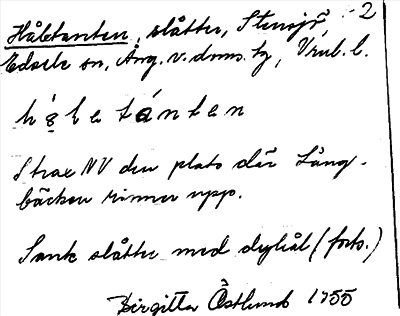 Håltanten, slåtter, Stensjö, -2
Edsele sn, Ång. v. doms. tg, Vnrl. l.
Strax NV den plats där Lång-
bäcken rinner upp.
Sank slåtter med dyhål (forts.)
Birgitta Östlund 1955